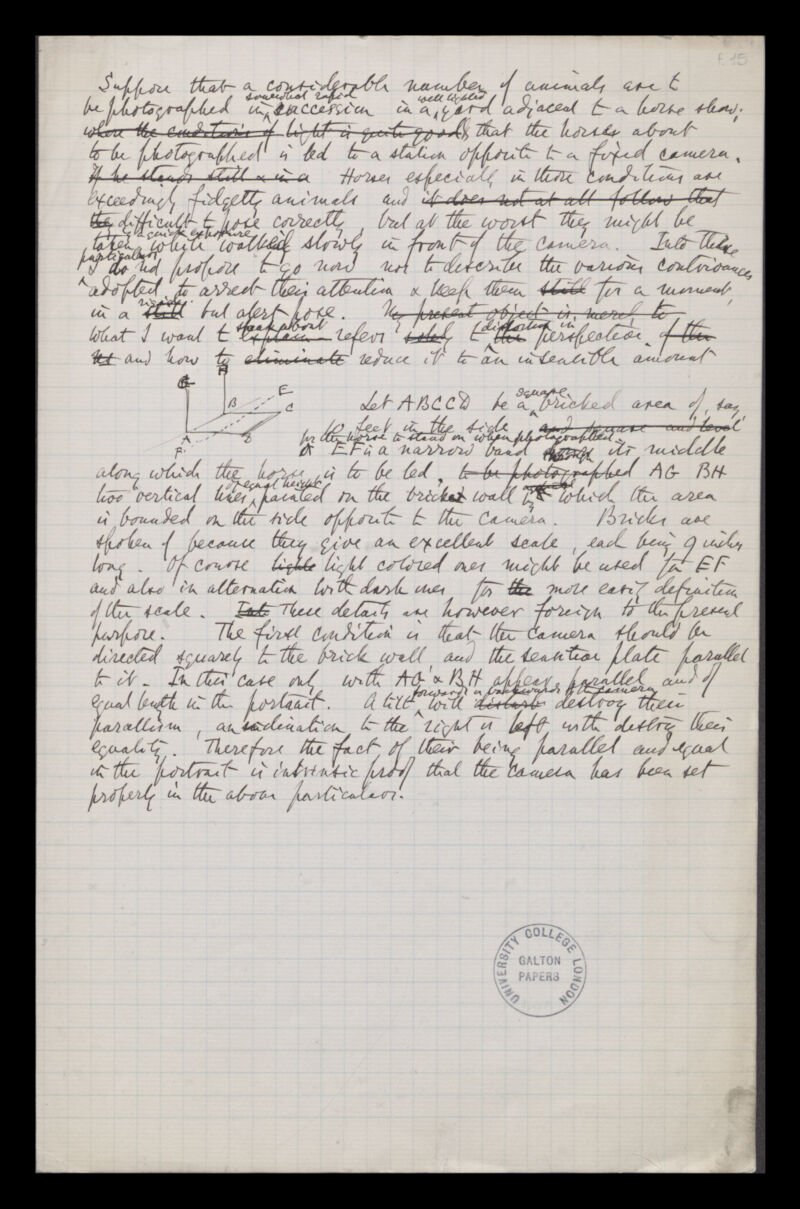 f. 15
Suppose that a considerable number of animals are to
somewhat rapid well lighted
be photographed in succession in a yard adjacent to a horse show;
where the conditions of light is quite good & that the horse about
to be photographed is led to a station opposite to a fixed camera.
If he stands still & in a Horses especially in those conditions are
exceedingly fidgetty animals and it does not at all follow that
the difficult to pose correctly but at the worst they might be
quick exposure
taken while walked slowly in front of the camera. Into these
particulars
I do not propose to go now nor to describe the various contrivances
adopted to arrest their attention & keep them still for a moment,
in a still but alert pose. My present object is, merely to
speak about distortion in
what I want to explain refers solely to the perspective of the
and how to eliminate reduce it to an insensible amount
G H
B E
C
A D
F
square
Let ABCD be a bricked area of, say,
feet in the side and square and level
for the horse to stand on when photographed
& EF is a narrow band through its middle
along which the horse is to be led, to be photographed AG BH
of equal height
two vertical lines painted on the brick wall by which the area
is bounded on the side opposite to the camera. Bricks are
spoken of because they give an excellent scale, each being 9 inches
long. Of course light light colored ones might be used for EF
and also in alternation with dark ones for the more easy definition
of the scale. These details are however foreign to the present
purpose. The first condition is that the camera should be
directed squarely to the brick wall and the sensitive plate parallel
to it. In this case only will AG & BH appear parallel and of
forwards or backwards of the camera
equal length in the portrait. A tilt will disturb destroy their
parallism, an inclination to the right or left will destroy their
equality. Therefore the fact of their being parallel and equal
in the portrait is intrinsic proof that the camera has been set
properly in the above particulars.
UNIVERSITY COLLEGE LONDON
GALTON
PAPERS